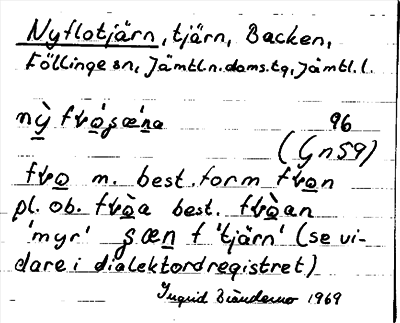 Nyflotjärn, tjärn, Backen,
Föllinge sn, Jämtl.n.doms.tg, Jämtl.l.
nỳ frǫ́gæ̀na
96
(Gn59)
fro m. best. form fron
pl. ob. fròa best. fròan
'myr' gæn f 'tjärn' (se vi-
dare i dialektordregistret)
Ingrid 1969